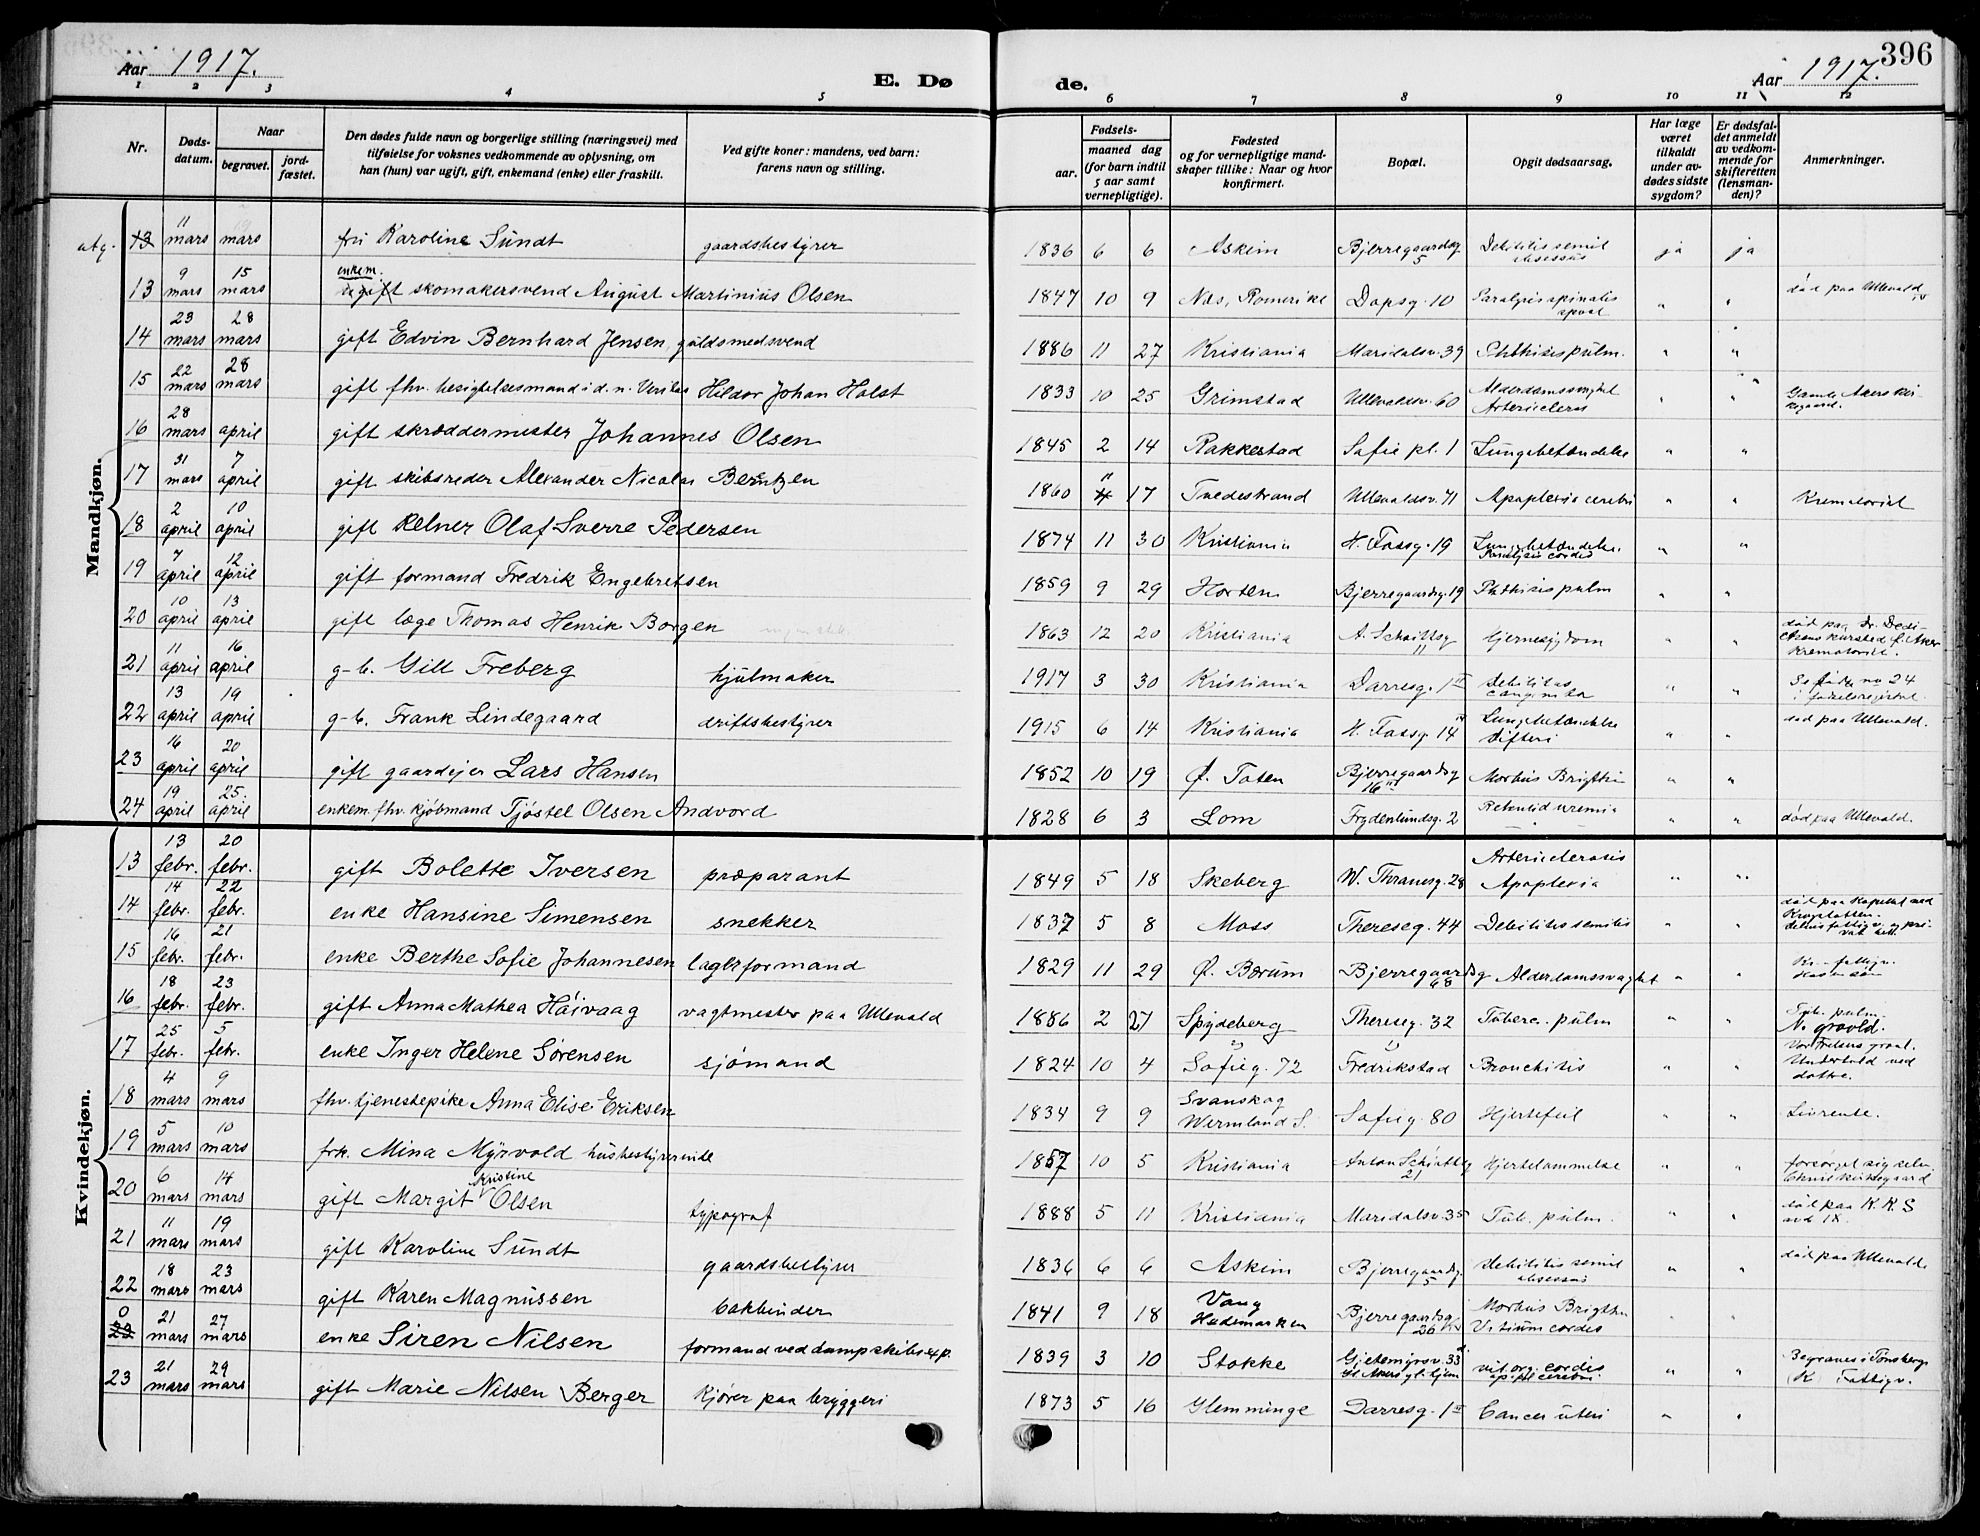 396
Aar 1917. E. Dø de. Aar 1917.
1 2 3 4 5 6 7 8 9 10 11 12
Nr. Dødsdatum. Naar begravet. jordfæstet. Den dødes fulde navn og borgerlige stilling (næringsvei) med tilføielse for voksnes vedkommende av oplysning, om han (hun) var ugift, gift, enkemand (enke) eller fraskilt. Ved gifte koner: mandens, ved barn: farens navn og stilling. Fødsels- aar. maaned dag (for barn indtil 5 aar samt vernepligtige). Fødested og for vernepligtige mandskaper tillike: Naar og hvor konfirmert. Bopæl. Opgit dødsaarsag. Har læge været tilkaldt under avdødes sidste sygdom? Er dødsfaldet anmeldt av vedkommende for skifteretten (lensmanden)? Anmerkninger.
Mandkjøn.
utg. 13 11 mars mars fru Karoline Sundt gaardsbestyrer 1836 6 6 Askim Bjerregaardsg 5 Debilitis senil absessus ja ja
13 9 mars 15 mars enkem. skomakersvend August Martinius Olsen 1847 10 9 Næs, Romerike Dopsg. 10 Paralysis spinalis " " død paa Ullevaal
14 23 mars 28 mars gift Edvin Bernhard Jensen, guldsmedsvend 1886 11 27 Kristiania Maridalsv. 39 Phthisis pulm. " "
15 22 mars 28 mars gift fhv. besigtelsesmand i d. n. Veritas Hildor Johan Holst 1833 10 25 Grimstad Ullevaldsv. 60 Alderdomssvaghet " " Gamle Akers kirkegaard.
16 28 mars april gift skræddermester Johannes Olsen 1845 2 14 Rakkestad Sofie pl. 1 Lungebetændelse " "
17 31 mars 7 april gift skibsreder Alexander Nicolai Berntzen 1860 11 17 Tvedestrand Ullevaldsv. 71 Apoplexia cerebri " " Krematoriet
18 2 april 10 april gift kelner Olaf Sverre Pedersen 1874 11 30 Kristiania H. Fossg. 19 Lungebetændelse. Paralysis cordis " "
19 7 april 12 april gift formand Fredrik Engebretsen 1859 9 29 Horten Bjerregaardsg. 19 Phthisis pulm " "
20 10 april 13 april gift læge Thomas Henrik Borgen 1863 12 20 Kristiania A. Schøittsg 11 hjernesygdom " " død paa Dr. Dedichens kursted Ø. Aker Krematoriet.
21 11 april 16 april g-b. Gill Freberg hjulmaker 1917 3 30 Kristiania Darresg. 1 Debilitas congenita " " Se no 24 i fødselsregistret.
22 13 april 19 april g-b. Frank Lindegaard driftsbestyrer 1915 6 14 Kristiania H. Fossg. 14 Lungebetændelse Difteri " " død paa Ullevald.
23 16 april 20 april gift gaardejer Lars Hansen 1852 10 19 Ø. Toten Bjerregaardsg 16 Morbus Brigthii " "
24 19 april 25. april enkem. fhv. kjøbmand Tjøstel Olsen Andvord 1828 6 3 Lom Frydenlundsg. 2 uremia " " død paa Ullevald.
Kvindekjøn.
13 13 febr. 20 febr. gift Bolette Iversen præparant 1849 5 18 Skeberg W. Thranesg. 28 Apoplexia " "
14 14 febr. 22 febr. enke Hansine Simensen snekker 1837 5 8 Moss Thereseg. 44 Debilitis senilis " "
15 16 febr. 21 febr. enke Berthe Sofie Johannesen lagerformand 1829 11 29 Ø. Bærum Bjerregaardsg 68 Alderdomssvaghet " "
16 18 febr. 23 febr. gift Anna Mathea Høivaag vagtmester paa Ullevald 1886 2 27 Spydeberg Thereseg. 32 Tuberc. pulm " " Tub. pulm.
17 25 febr. 5 febr. enke Inger Helene Sørensen sjømand 1824 10 4 Sofieg. 72 Fredrikstad Bronchitis " " Vor Frelsers gravl. Underhold ved dattre.
18 4 mars 9 mars fhv. tjenestepike Anna Elise Eriksen 1834 9 9 Svanskog Wermland S. Sofieg. 80 Hjertefeil " " Livrente.
19 5 mars 10 mars frk. Mina Myrvold husbestyrerinde 1857 10 5 Kristiania Anton Schøittsg 21 Hjertelammelse " " forsørget sig selv.
20 6 mars 14 mars gift Margit Kristine Olsen typograf 1888 5 11 Kristiania Maridalsv. 35 Tub. pulm. " " død paa K. K. S avd IX.
21 11 mars 19 mars gift Karoline Sundt gaardsbestyrer 1836 6 6 Askim Bjerregaardsg. 5 Debilitis senil absessus " " død paa Ullevald
22 18 mars 23 mars gift Karen Magnussen bokbinder 1841 9 18 Vang Hedemarken Bjerregaardsg 26 Morbus Brigthii Vitium cordis
0 22 21 mars 27 mars enke Siren Nilsen formand ved dampskibsexp. 1839 3 10 Stokke Gjetemyrsv. 33 vit. org. cordis apopl. cerebri. " " Begraves i Tønsberg (K) Fattigv.
23 21 mars 29 mars gift Marie Nilsen Berger kjører paa bryggeri 1873 5 16 Glemminge Darresg. 1 Cancer uteri " "